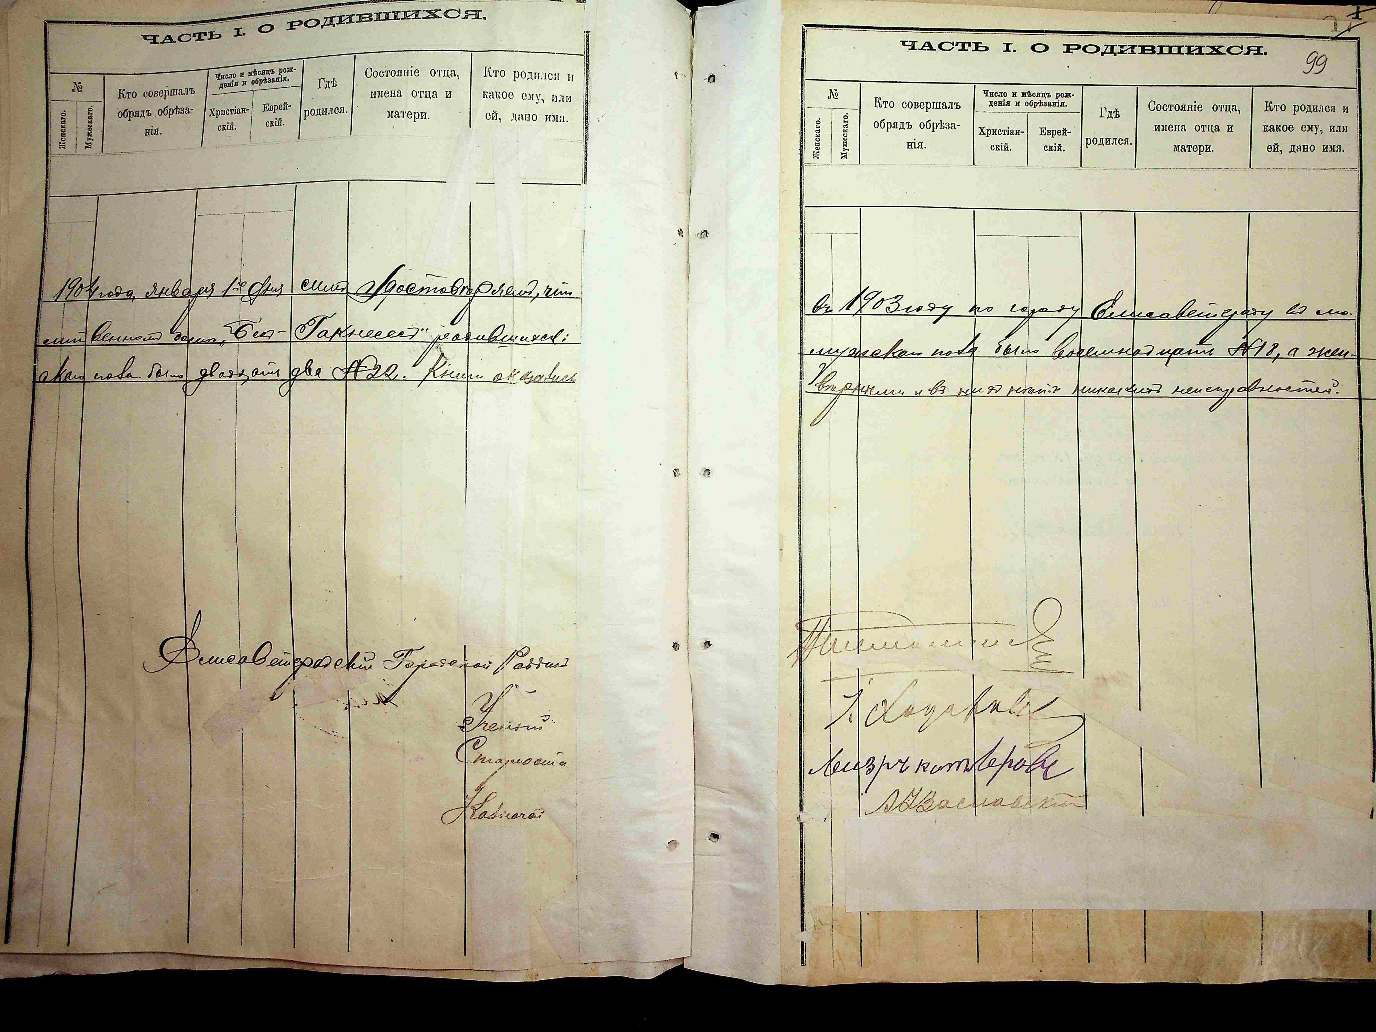 ЧАСТЬ I. О РОДИВШИХСЯ.
№
Женскаго.
Мужескаго.
Кто совершалъ
обрядъ обрѣза-
нія.
Число и мѣсяцъ рож-
денія и обрѣзанія.
Христіан-
скій.
Еврей-
скій.
Гдѣ
родился.
Состояніе отца,
имена отца и
матери.
Кто родился и
какое ему, или
ей, дано имя.
1904 года, января 1го дня симъ удостовѣряемъ, что
литвенномъ домѣ „Бет- Гакнесет" родившихся:
скаго пола было двадцать два №22. Книги оказались
Елисаветградскій Городской Раввинъ
Ученый
Староста
Казначей
ЧАСТЬ I. О РОДИВШИХСЯ.
99
№
Женскаго.
Мужескаго.
Кто совершалъ
обрядъ обрѣза-
нія.
Число и мѣсяцъ рож-
денія и обрѣзанія.
Христіан-
скій.
Еврей-
скій.
Гдѣ
родился.
Состояніе отца,
имена отца и
матери.
Кто родился и
какое ему, или
ей, дано имя.
въ 1903 году по городу Елисаветграду въ мо-
мужескаго пола было восемнадцать №18, а жен-
вѣрными и въ нихъ нѣтъ никакихъ неисправностей.